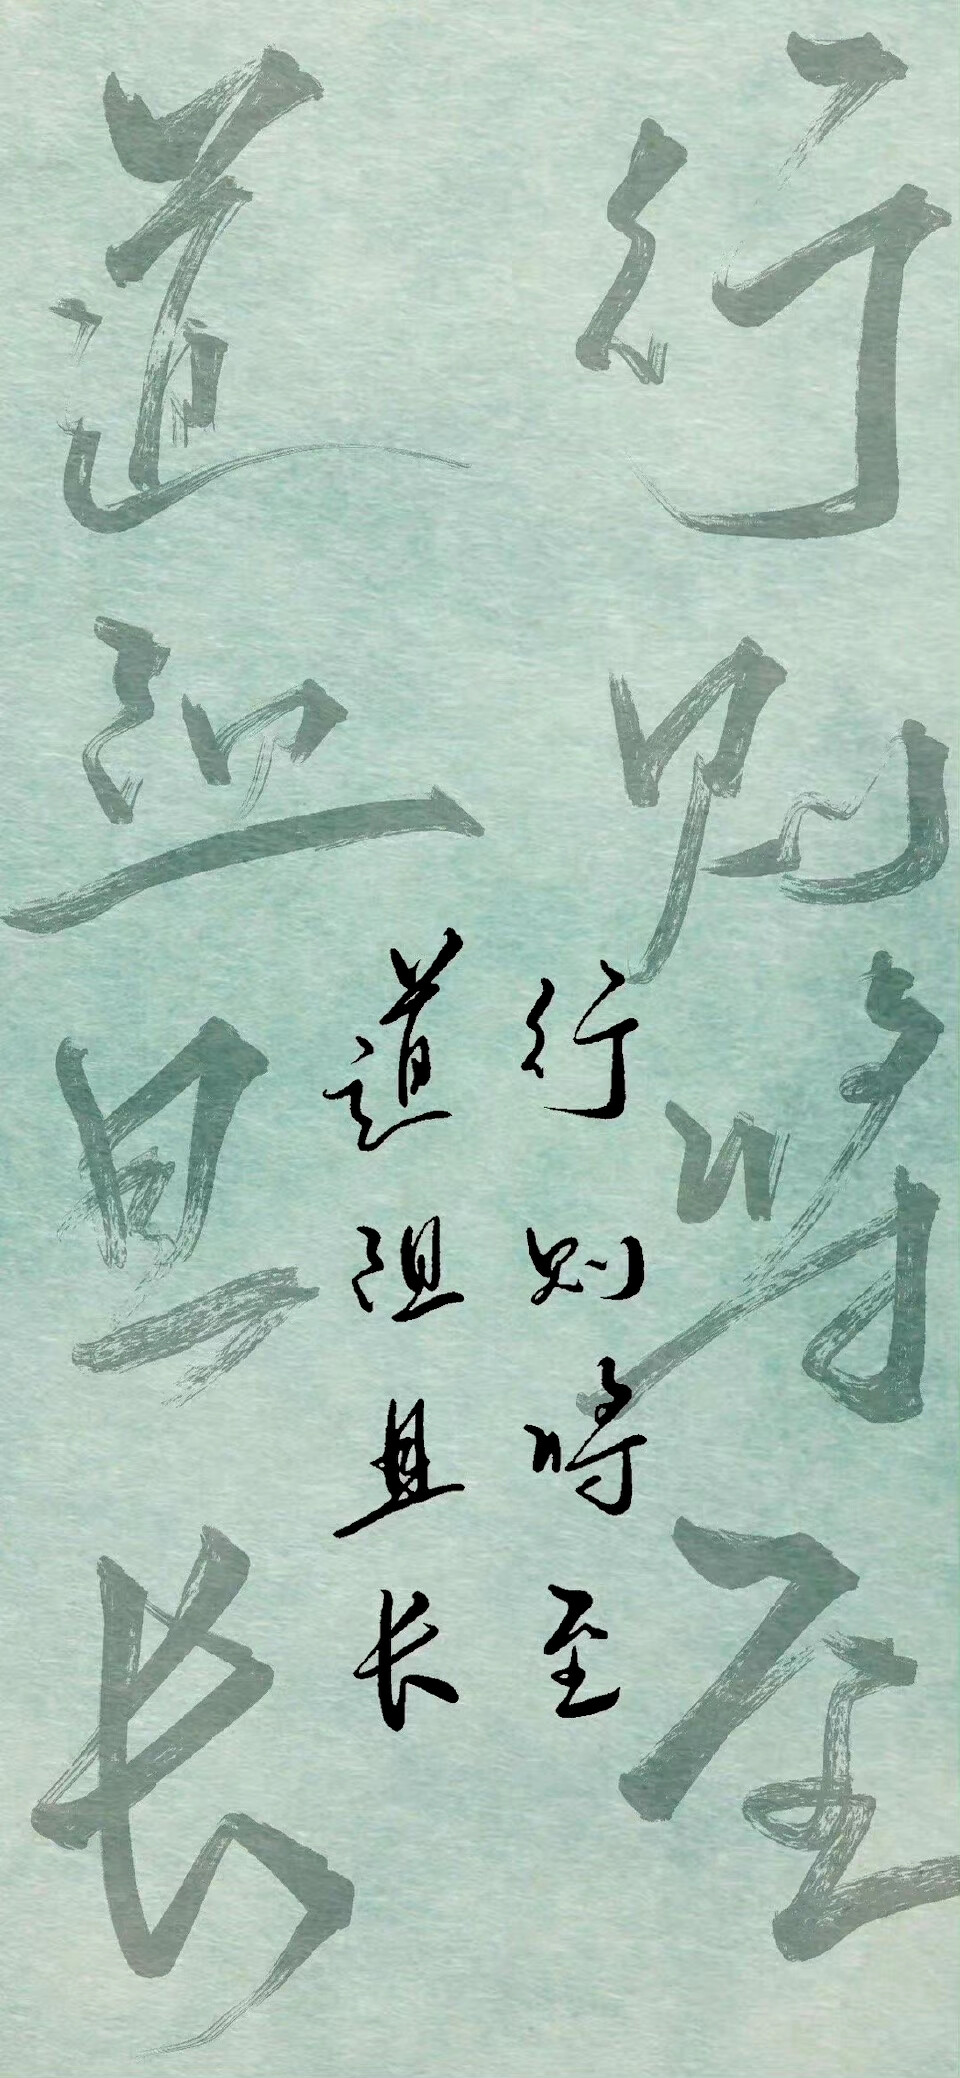 行则将至
道阻且长
行则将至
道阻且长